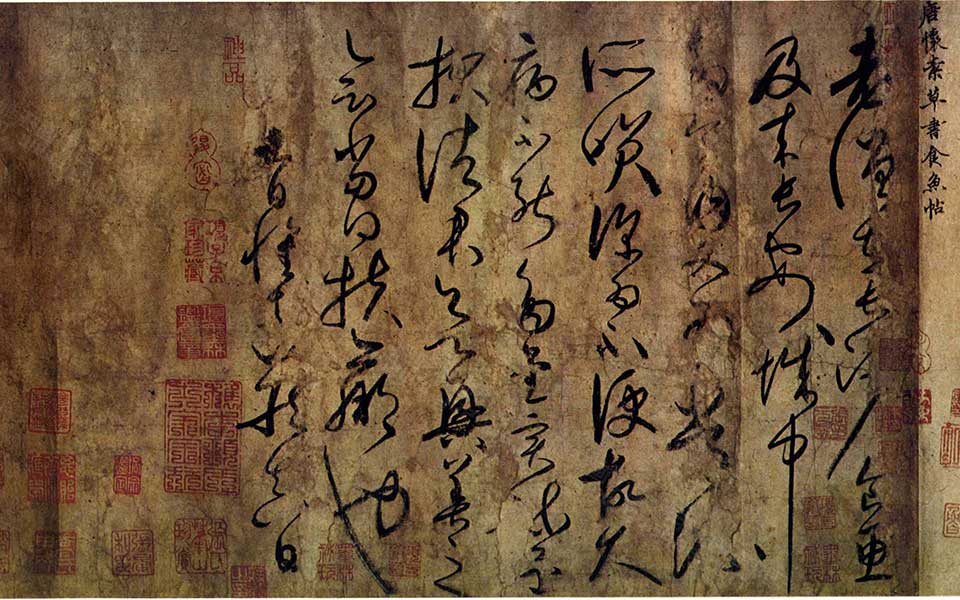 唐懷素草書食魚帖
老僧在長沙食魚
及来長安城中
多食肉又為常流
所笑深為不便故久
病不能多書實疎還
報諸君欲興善之
會當得扶羸也
九日懷素藏真白
神品
項子京家珍藏